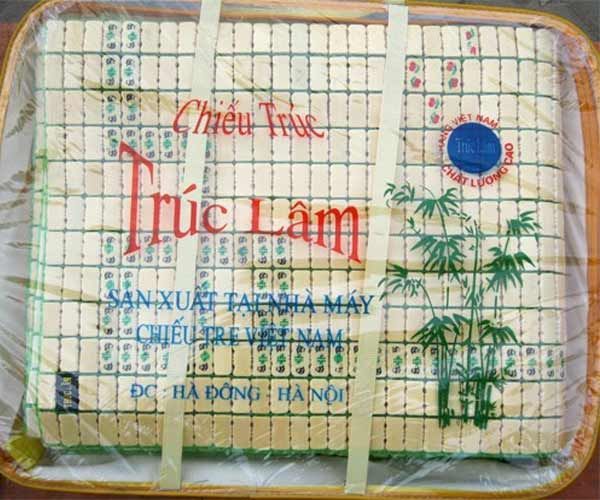 Chiếu Trúc
HÀNG VIỆT NAM
Trúc Lâm
CHẤT LƯỢNG CAO
Trúc Lâm
SẢN XUẤT TẠI NHÀ MÁY
CHIẾU TRE VIỆT NAM
ĐC : HÀ ĐÔNG - HÀ NỘI